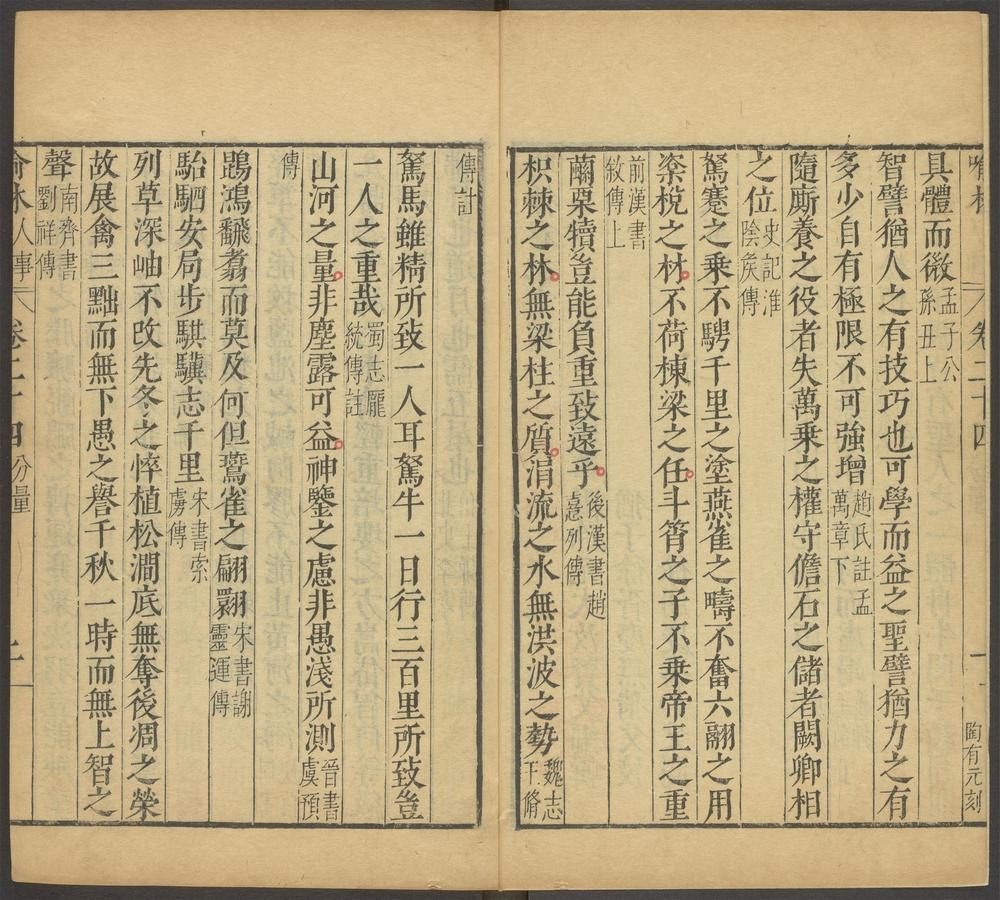 卷二十四 陶有元刻
具體而微孟子公孫丑上
智譬猶人之有技巧也可學而益之聖譬猶力之有
多少自有極限不可強增趙氏註孟萬章下
隨廝養之役者失萬乘之權守儋石之儲者闕卿相
之位史記淮陰矦傳
駑蹇之乘不騁千里之塗燕雀之疇不奮六翮之用
楶梲之材不荷棟梁之任斗筲之子不乘帝王之重
前漢書敘傳上
繭栗犢豈能負重致遠乎後漢書趙憙列傳
枳棘之林無梁柱之質涓流之水無洪波之勢魏志王脩
傳註
駑馬雖精所致一人耳駑牛一日行三百里所致豈
一人之重哉蜀志龐統傳註
山河之量非塵露可益神鑒之慮非愚淺所測晉書虞預
傳
鵾鴻飜翥而莫及何但鷽雀之翩翾宋書謝靈運傳
駘駟安局步騏驥志千里宋書索虜傳
列草深岫不改先冬之悴植松澗底無奪後凋之榮
故展禽三黜而無下愚之譽千秋一時而無上智之
聲南齊書劉祥傳
人事六 卷二十四 分量